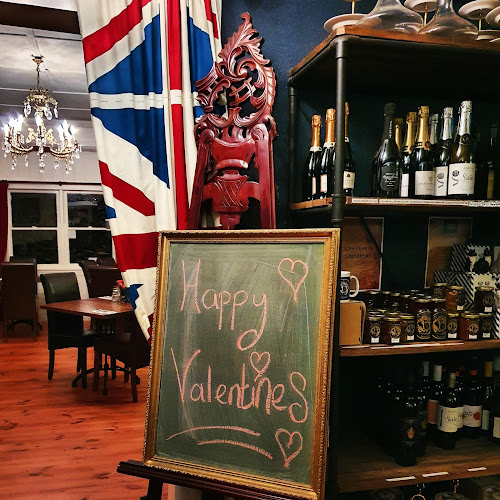 Happy
Valentines